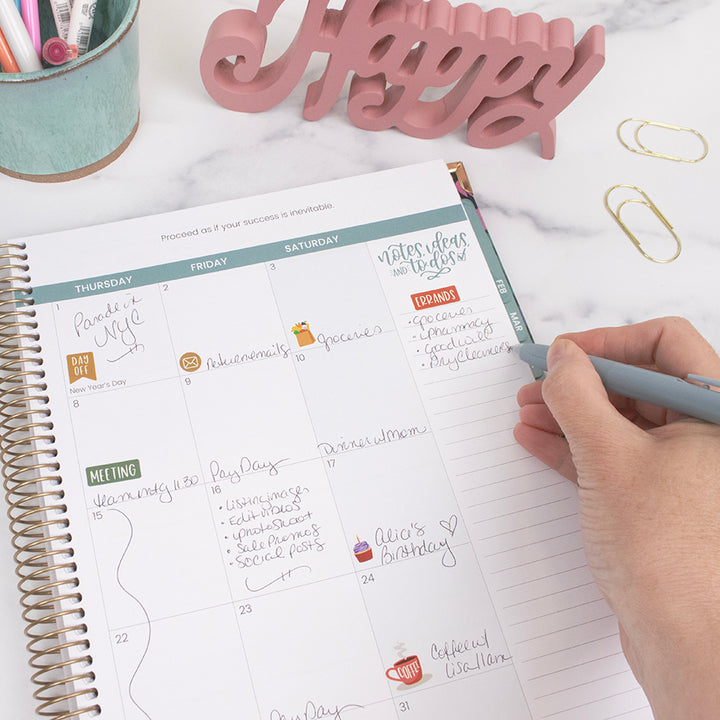 Happy
Proceed as if your success is inevitable.
THURSDAY FRIDAY SATURDAY
notes, ideas,
AND to dos
FEB
MAR
1
Parade in
NYC
DAY
OFF
New Year's Day
2
Return emails
3
Groceries
ERRANDS
• groceries
• pharmacy
• Goodwill
• Dry Cleaners
8
MEETING
Team mtg 11:30
9
Pay Day
10
Dinner w/ Mom
15
16
• Listing images
• Edit videos
• photoshoot
• Sale Promos
• Social Posts
17
Alici's
Birthday
22
23
Pay Day
24
COFFEE
Coffee w/
Lisa 11am
31